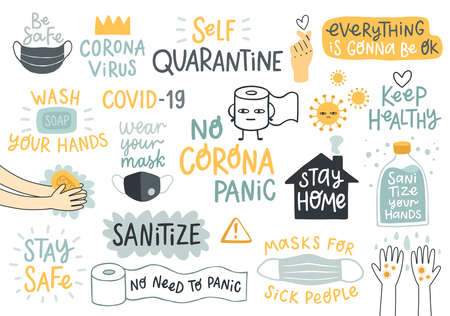 Be
Safe
CORONA
VIRUS
SELF
QUARANTINE
EVERYTHING
IS GONNA BE OK
WASH
SOAP
YOUR HANDS
COVID-19
wear
your
mask
NO
CORONA
PANIC
KEEP
HEALTHY
STAY
HOME
SANI
TIZE
YOUR
HANDS
STAY
SAFE
SANITIZE
!
NO NEED TO PANIC
MASKS FOR
SICK PEOPLE